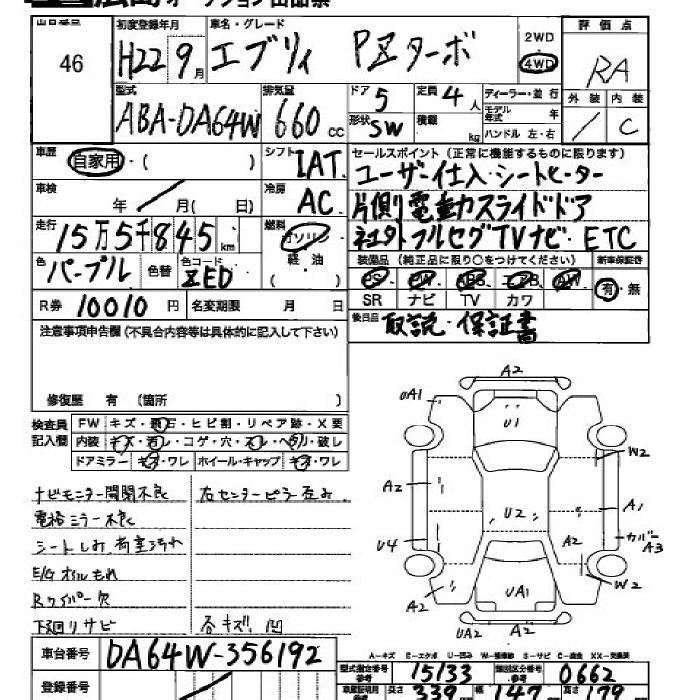 広島 オークション出品票
出品番号 46
初度登録年月 H22年9月
車名・グレード エブリィ PZターボ
2WD
4WD
評価点 RA
型式 ABA-DA64W
排気量 660 cc
ドア 5
定員 4人
ディーラー・並行
モデル年式 年
ハンドル 左・右
形状 SW
積載 kg
外装 /
内装 C
車歴 自家用・( )
シフト IAT
車検 年 / 月( 日)
冷房 AC
走行 15万5千845 km
燃料 ガソリン
軽油
色 パープル 色替 色コード ZED
セールスポイント(正常に機能するものに限ります)
ユーザー仕入・シートヒーター
片側電動スライドドア
社外フルセグTVナビ・ETC
装備品(純正品に限り○をつけてください) 新車保証書
PS PW ABS エアB AW
SR ナビ TV カワ
有・無
R券 10010円 名変期限 月 日
後日品 取説・保証書
注意事項申告欄(不具合内容等は具体的に記入して下さい)
修復歴 有 (箇所 )
検査員記入欄
FW キズ・飛石・ヒビ割・リペア跡・X要
内装 キズ・汚レ・コゲ・穴・スレ・ヘタリ・破レ
ドアミラー キズ・ワレ ホイール・キャップ キズ・ワレ
ナビモニター開閉不良 右センターピラー歪み
電格ミラー不良
シートしみ、荷室汚れ
E/Gオイルもれ
Rワイパー欠
下廻りサビ 各キズ、凹
A2
UA1
U1
W2
A2
A1
U2
カバーA3
U4
A2
W2
A2
UA1
UA2
A2
A-キズ E-エクボ U-凹み W-補修跡 S-サビ C-腐食 XX-交換済
車台番号 DA64W-356192
登録番号
型式指定番号 参考 15133
類別区分番号 参考 0662
車庫証明用 参考 長さ 339 幅 147 高さ 179